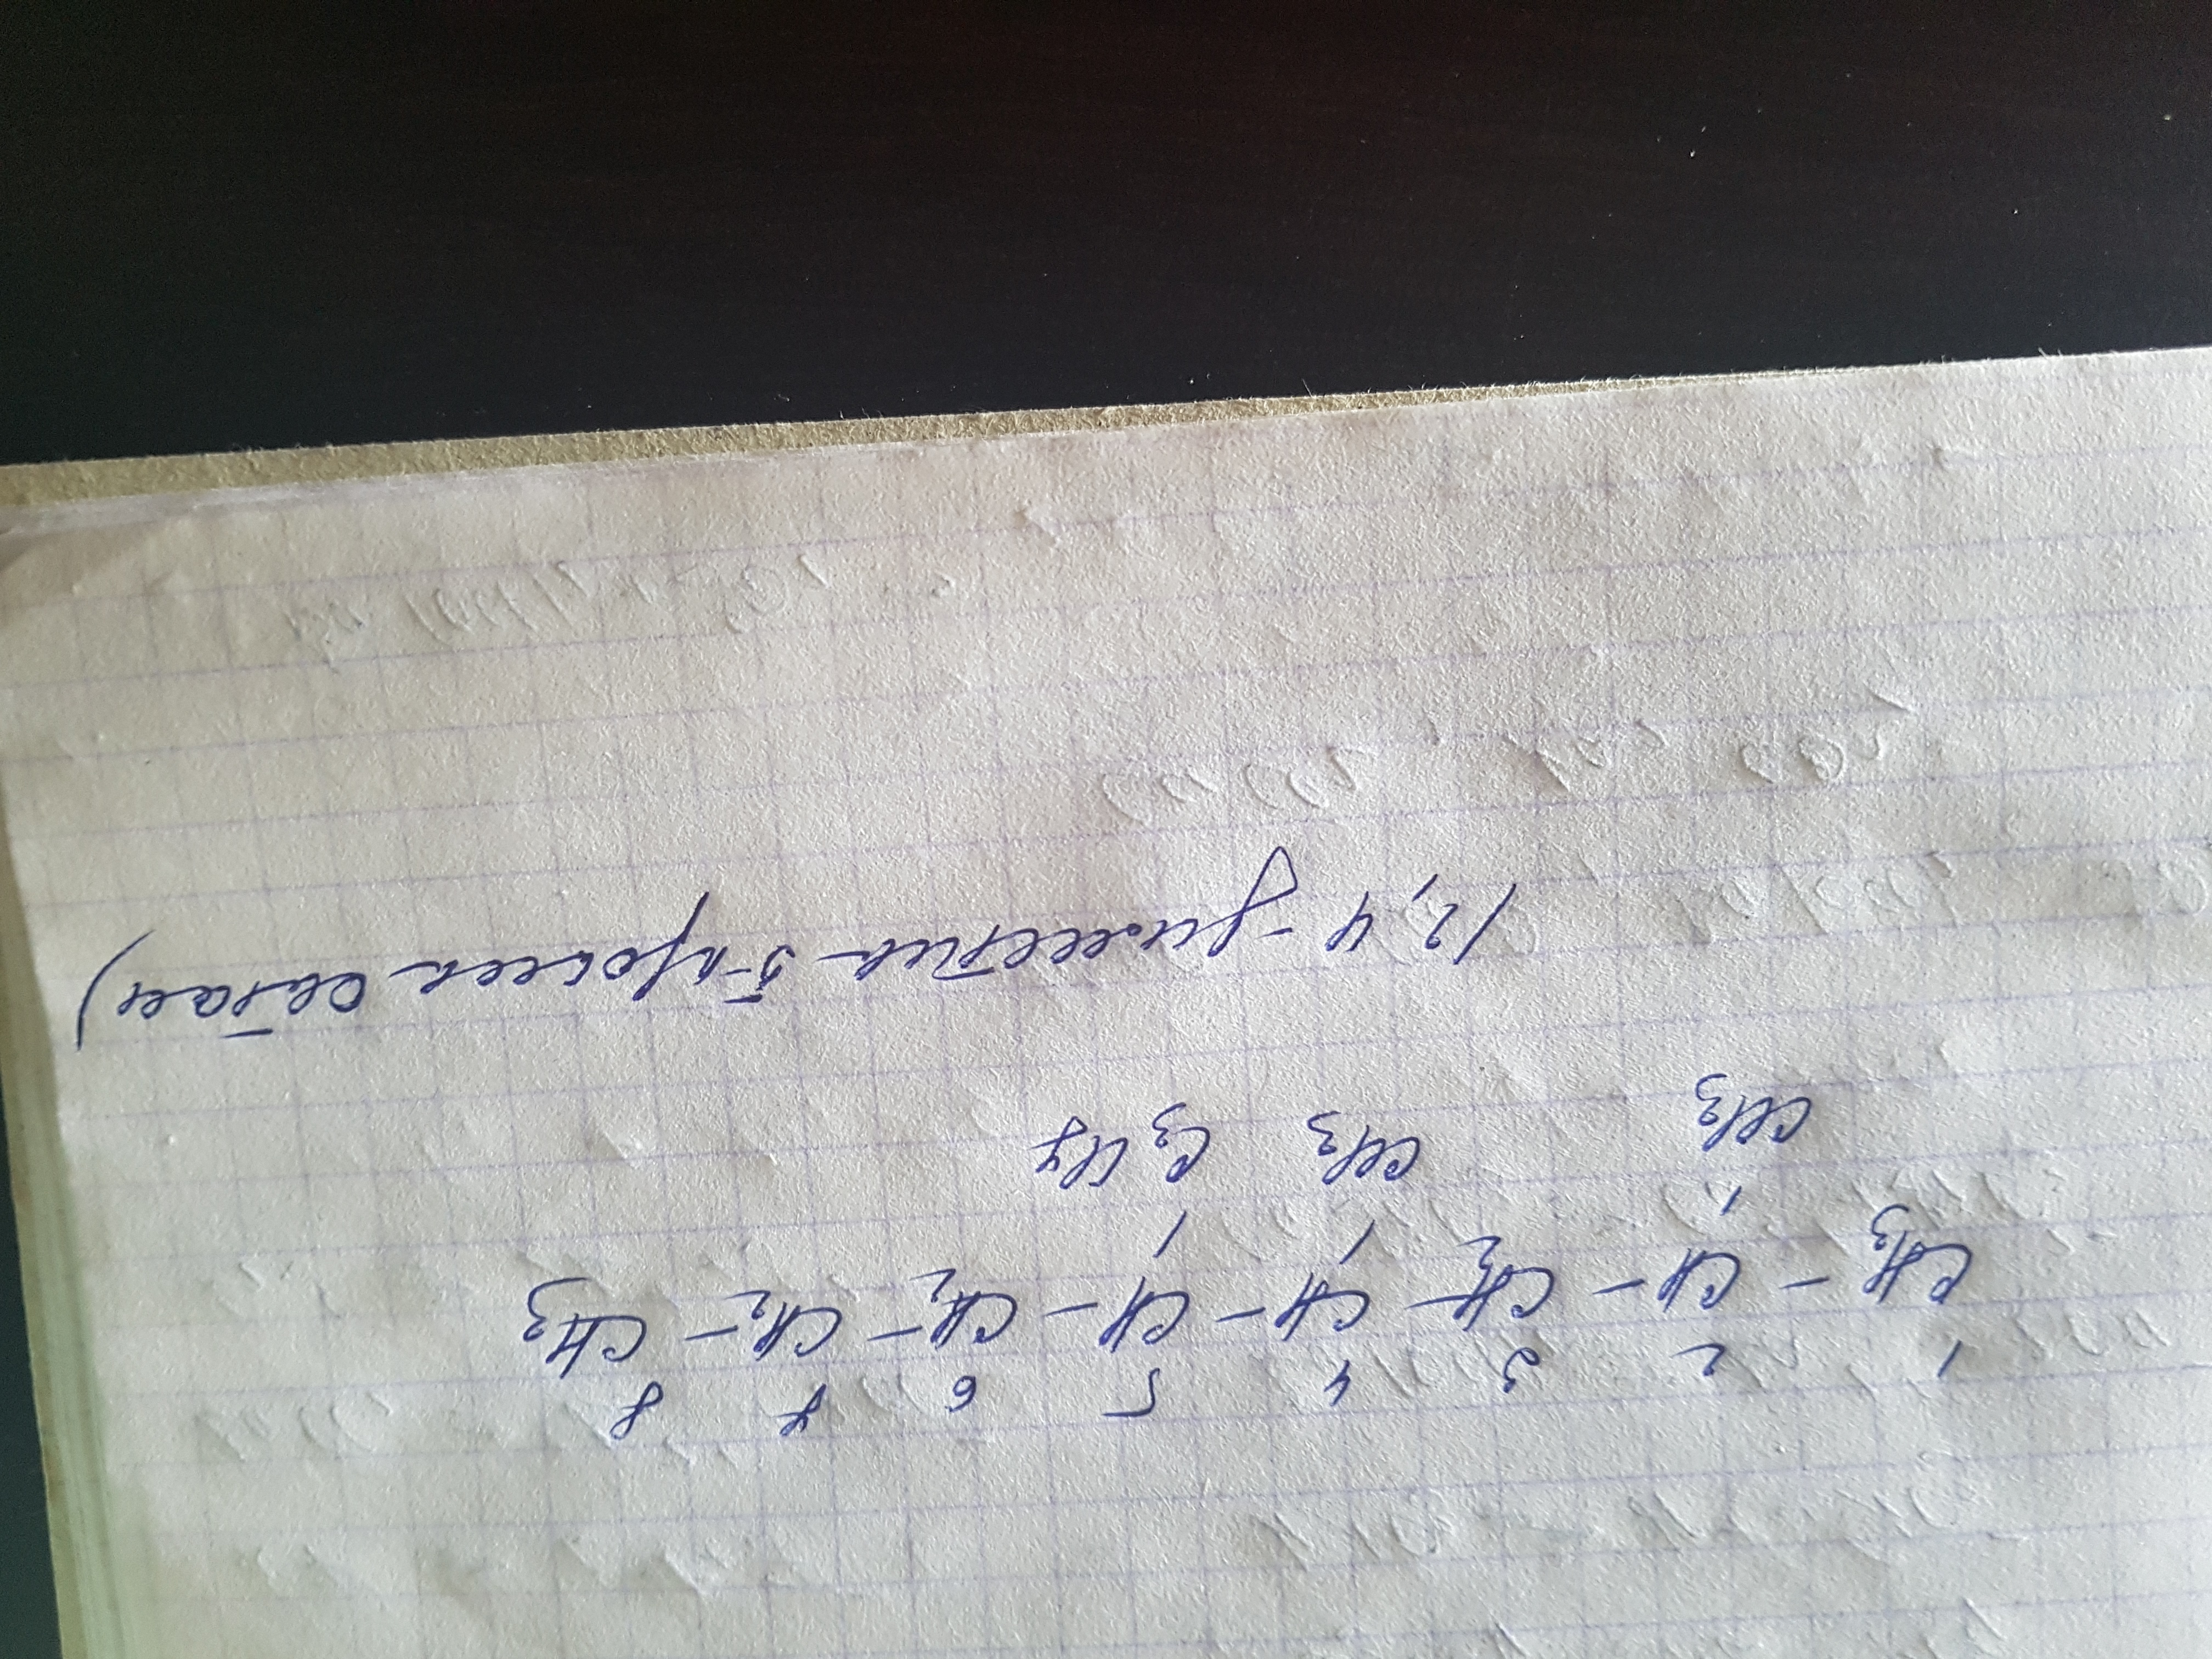 1 2 3 4 5 6 7 8
CH3 – CH – CH2 – CH – CH – CH2 – CH2 – CH3
CH3 CH3 C3H7
(2,4 - диметил 5-пропил октан)